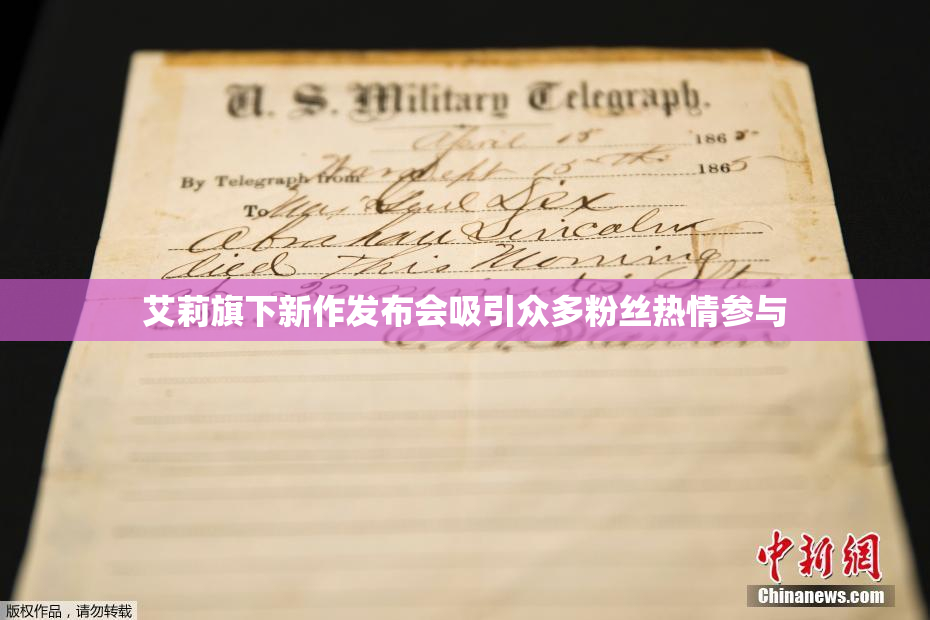 U. S. Military Telegraph.
April 15 1865
By Telegraph from War Dept 15th 1865
To Maj Genl Dix
Abraham Lincoln
died This Morning
22 minutes after
艾莉旗下新作发布会吸引众多粉丝热情参与
E. M. Stanton
中新网
Chinanews.com
版权作品，请勿转载